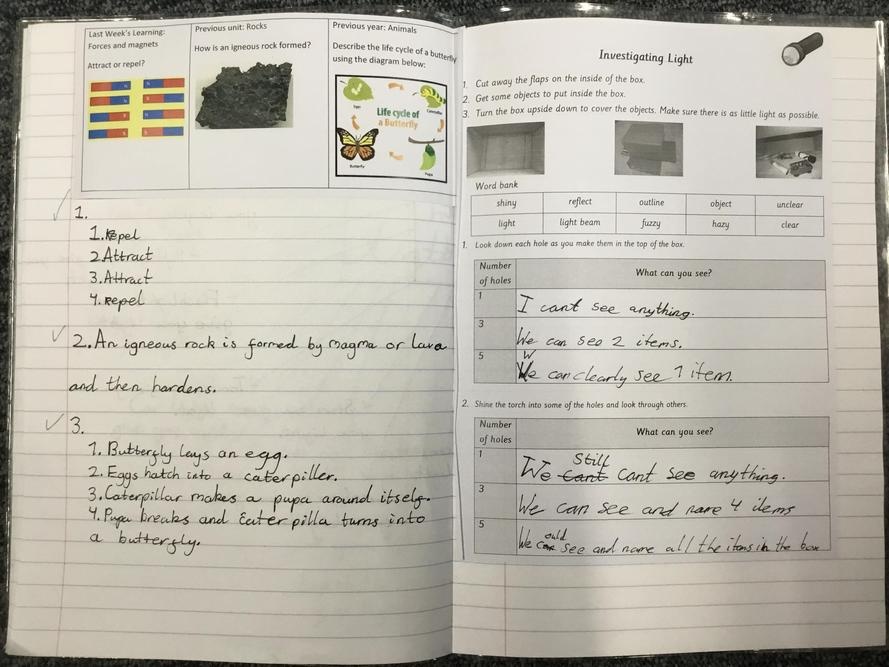 Last Week's Learning:
Forces and magnets
Attract or repel?
Previous unit: Rocks
How is an igneous rock formed?
Previous year: Animals
Describe the life cycle of a butterfly
using the diagram below:
Life cycle of
a Butterfly
Eggs
Caterpillar
Pupa
Butterfly
1.
1. Repel
2 Attract
3. Attract
4. Repel
2. An igneous rock is formed by magma or lava
and then hardens.
3.
1. Butterfly lays an egg.
2. Eggs hatch into a caterpiller.
3. Caterpillar makes a pupa around itself.
4. Pupa breaks and Cater pilla turns into
a butterfly.
Investigating Light
1. Cut away the flaps on the inside of the box.
2. Get some objects to put inside the box.
3. Turn the box upside down to cover the objects. Make sure there is as little light as possible.
Word bank
shiny reflect outline object unclear
light light beam fuzzy hazy clear
1. Look down each hole as you make them in the top of the box.
Number
of holes
What can you see?
1 I cant see anything.
3 We can see 2 items.
5 We can clearly see 1 item.
2. Shine the torch into some of the holes and look through others.
Number
of holes
What can you see?
1 We Cant Still cant see anything.
3 We can see and name 4 items
5 We could see and name all the items in the box